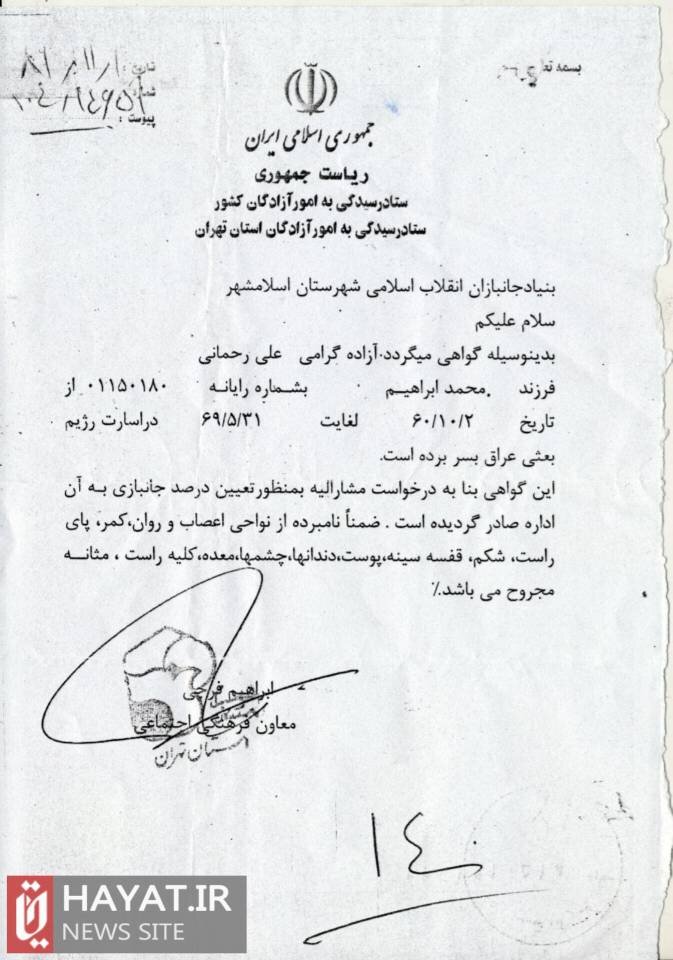 بسمه تعا
تاریخ :
شماره
پیوست :
جمهوری اسلامی ایران
ریاست جمهوری
ستاد رسیدگی به امور آزادگان کشور
ستاد رسیدگی به امور آزادگان استان تهران
بنیاد جانبازان انقلاب اسلامی شهرستان اسلامشهر
سلام علیکم
بدینوسیله گواهی میگردد آزاده گرامی علی رحمانی
فرزند محمد ابراهیم بشماره رایانه ۰۱۱۵۰۱۸۰ از
تاریخ ۶۰/۱۰/۲ لغایت ۶۹/۵/۳۱ دراسارت رژیم
بعثی عراق بسر برده است.
این گواهی بنا به درخواست مشارالیه بمنظور تعیین درصد جانبازی به آن
اداره صادر گردیده است . ضمناً نامبرده از نواحی اعصاب و روان،کمر، پای
راست، شکم، قفسه سینه،پوست،دندانها،چشمها،معده،کلیه راست ، مثانه
مجروح می باشد.٪
ابراهیم فرجی
معاون فرهنگی اجتماعی
استان تهران
۱۴
HAYAT.IR
NEWS SITE